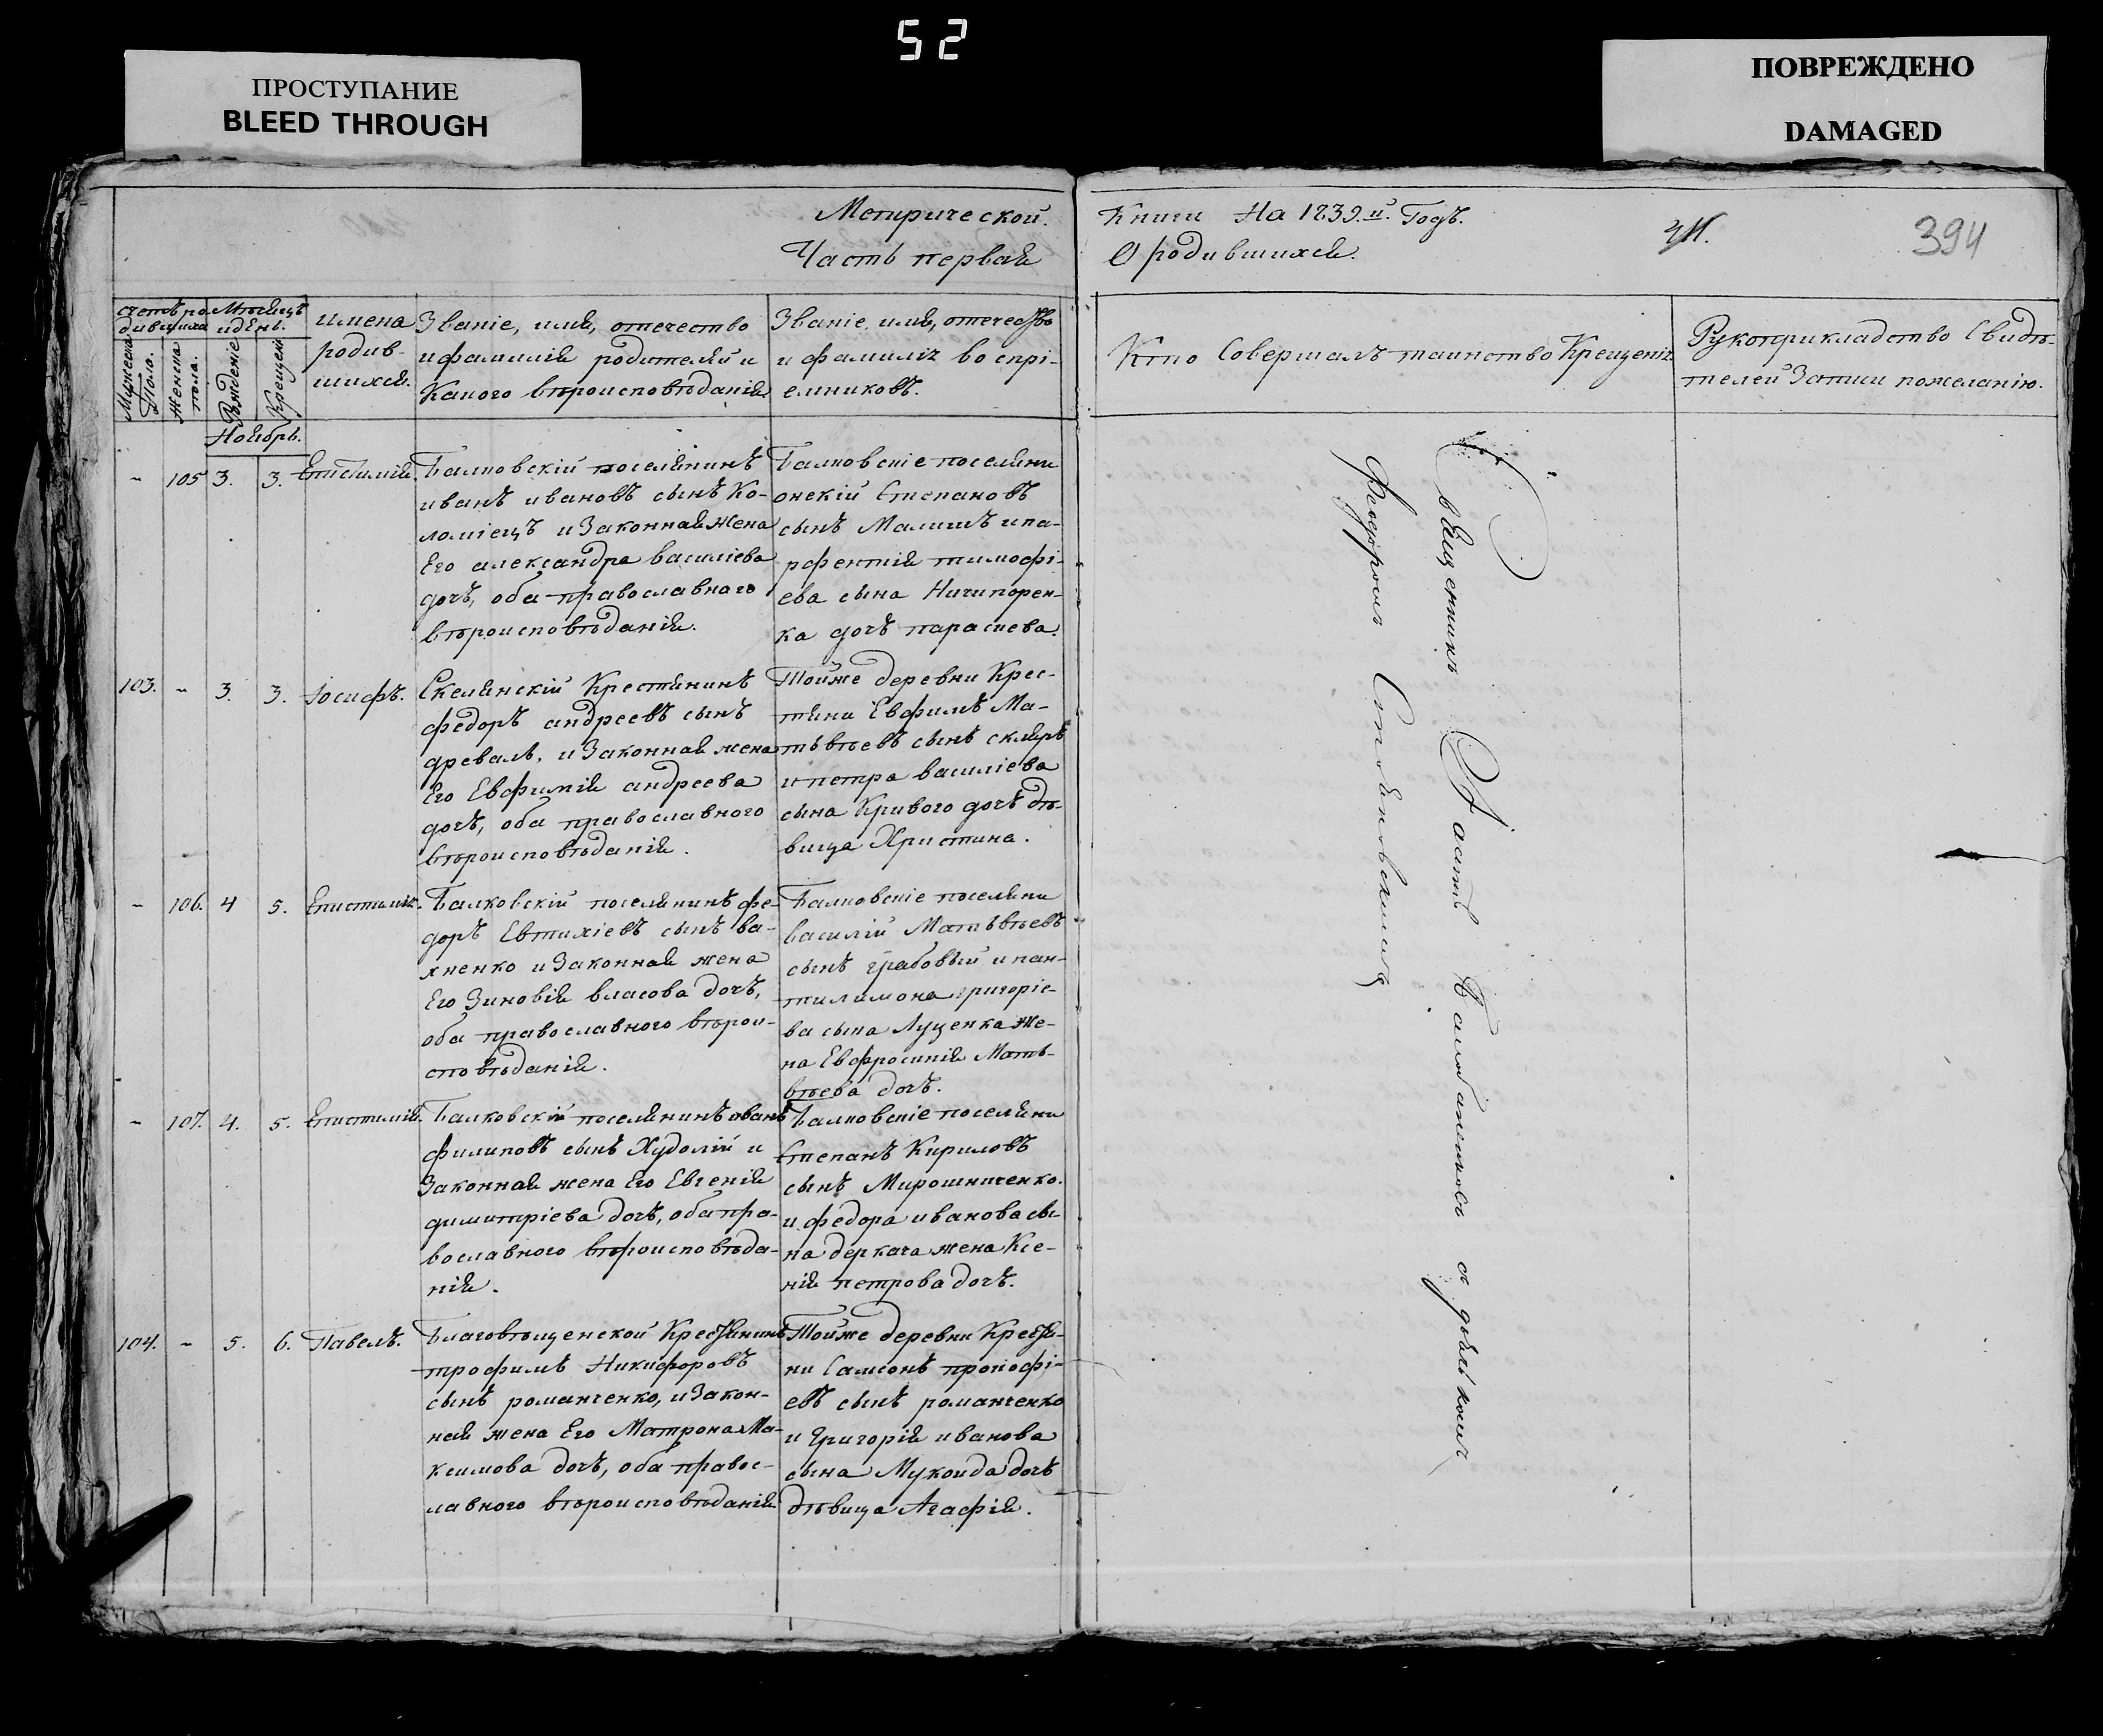 52
ПРОСТУПАНИЕ
BLEED THROUGH
ПОВРЕЖДЕНО
DAMAGED
Метрической.
Часть первая
Книги На 1839.й. Годъ.
О родившихся.
394
счетъ ро-
дившихся
Мужеска
Полъ.
Женска
пола.
Мѣсяцъ
и день.
Рожденіе
Крещені
имена
родив-
шихся.
Званіе, имя, отечество
и фамилія родителей и
Какого вѣроисповѣданія
Званіе имя, отечество
и фамилія воспрі-
емниковъ.
Кто Совершалъ таинство Крещенія.
Рукоприкладство Свидѣ-
телей Записи по желанію.
Ноябрь.
- 105 3. 3. Епистимія.
Балковскій поселянинъ
иванъ ивановъ сынъ Ко-
ломіецъ и Законная жена
Его александра василіева
дочь, оба православнаго
вѣроисповѣданія.
Балковскіе поселяни
онскій Степановъ
сынъ Малишъ и па-
рфентія тимофі-
ева сына Ничипорен-
ка дочь параскева.
103. - 3. 3. Іосифъ.
Скелянскій Крестянинъ
федоръ андреевъ сынъ
древаль, и Законная жена
Его Евфимія андреева
дочь, оба православного
вѣроисповѣданія.
Тойже деревни Крес-
тяни Евфимъ Ма-
тьвѣевъ сынъ скляръ
и петра василіева
сына Кривого дочь дѣ-
вица Христина.
- 106. 4 5. Епистимія.
Балковскій поселянинъ фе-
доръ Евтихіевъ сынъ ва-
хненко и Законная жена
Его Зиновія власова дочь,
оба православного вѣрои-
сповѣданія.
Балковскіе поселяни
василій Матьвѣевъ
сынъ грабовый и пан-
тилимона григоріе-
ва сына Луценка же-
на Евфросинія Мать-
вѣева дочь.
- 107. 4. 5. Епистимія.
Балковскій поселянинъ иванъ
филиповъ сынъ Худолій и
Законная жена Его Евгенія
димитріева дочь, оба пра-
вославного вѣроисповѣда-
нія.
Балковскіе поселяни
Степанъ Кириловъ
сынъ Мирошниченко.
и федора иванова сы-
на деркача жена Ксе-
нія петрова дочь.
104. - 5. 6. Павелъ.
Благовѣщенской Крестянинъ
трофимъ Никифоровъ
сынъ романченко, и Закон-
ная жена Его Матрона Ма-
ксимова дочь, оба правос-
лавного вѣроисповѣданія
Тойже деревни Крестя-
ни Самсонъ прокофі-
евъ сынъ романченко
и Григорія иванова
сына Мукоида дочь
дѣвица Агафія.
Священникъ съ дьячкомъ
Феодоромъ